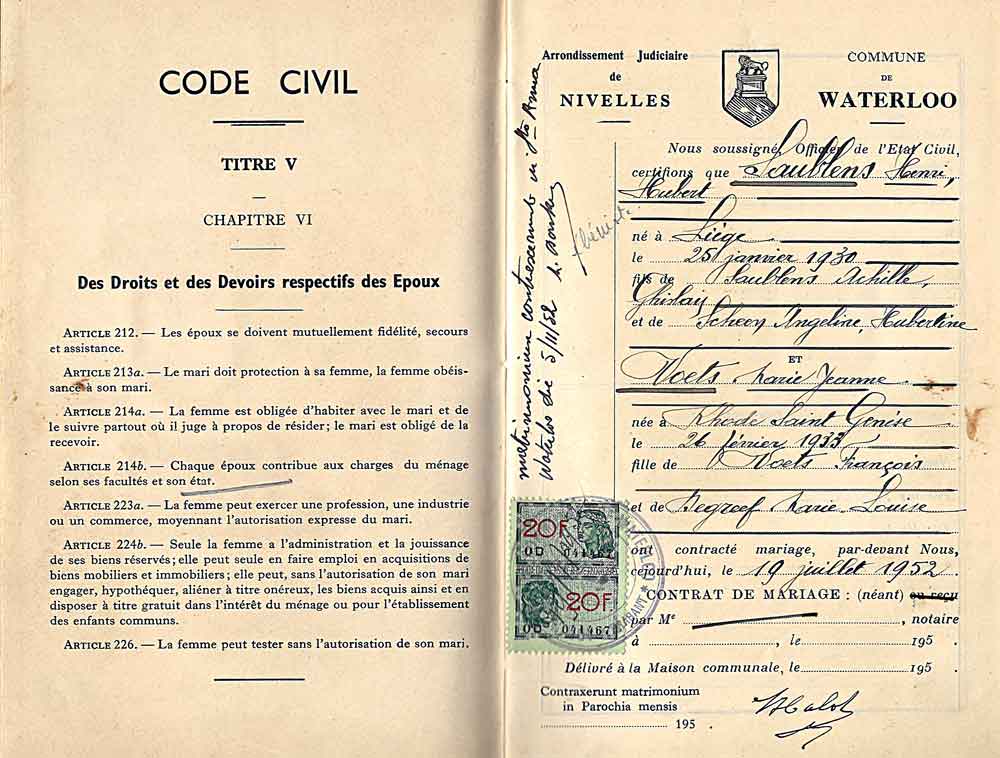 CODE CIVIL
TITRE V
CHAPITRE VI
Des Droits et des Devoirs respectifs des Epoux
ARTICLE 212. — Les époux se doivent mutuellement fidélité, secours
et assistance.
ARTICLE 213a. — Le mari doit protection à sa femme, la femme obéis-
sance à son mari.
ARTICLE 214a. — La femme est obligée d'habiter avec le mari et de
le suivre partout où il juge à propos de résider; le mari est obligé de la
recevoir.
ARTICLE 214b. — Chaque époux contribue aux charges du ménage
selon ses facultés et son état.
ARTICLE 223a. — La femme peut exercer une profession, une industrie
ou un commerce, moyennant l'autorisation expresse du mari.
ARTICLE 224b. — Seule la femme a l'administration et la jouissance
de ses biens réservés; elle peut seule en faire emploi en acquisitions de
biens mobiliers et immobiliers; elle peut, sans l'autorisation de son mari
engager, hypothéquer, aliéner à titre onéreux, les biens acquis ainsi et en
disposer à titre gratuit dans l'intérêt du ménage ou pour l'établissement
des enfants communs.
ARTICLE 226. — La femme peut tester sans l'autorisation de son mari.
Arrondissement Judiciaire
de
NIVELLES
COMMUNE
DE
WATERLOO
Nous soussigné, Officier de l'Etat Civil,
certifions que Saublens Henri,
Hubert
né à Liège
le 25 janvier 1930
fils de Saublens Achille,
Ghislain
et de Scheen Angeline, Hubertine
ET
Voets Marie Jeanne
née à Rhode Saint Genèse
le 26 février 1933
fille de Voets François
et de Degreef Marie Louise
ont contracté mariage, par-devant Nous,
cejourd'hui, le 19 juillet 1952.
CONTRAT DE MARIAGE : (néant) ou reçu
par Me , notaire
à , le 195
Délivré à la Maison communale, le 195
Contraxerunt matrimonium
in Parochia mensis
195 .
matrimonium contraxerunt in Sto Anna
Waterloo die 5/11/52
ébéniste
20F
OD 041467
20F
OD 041467
BRABANT